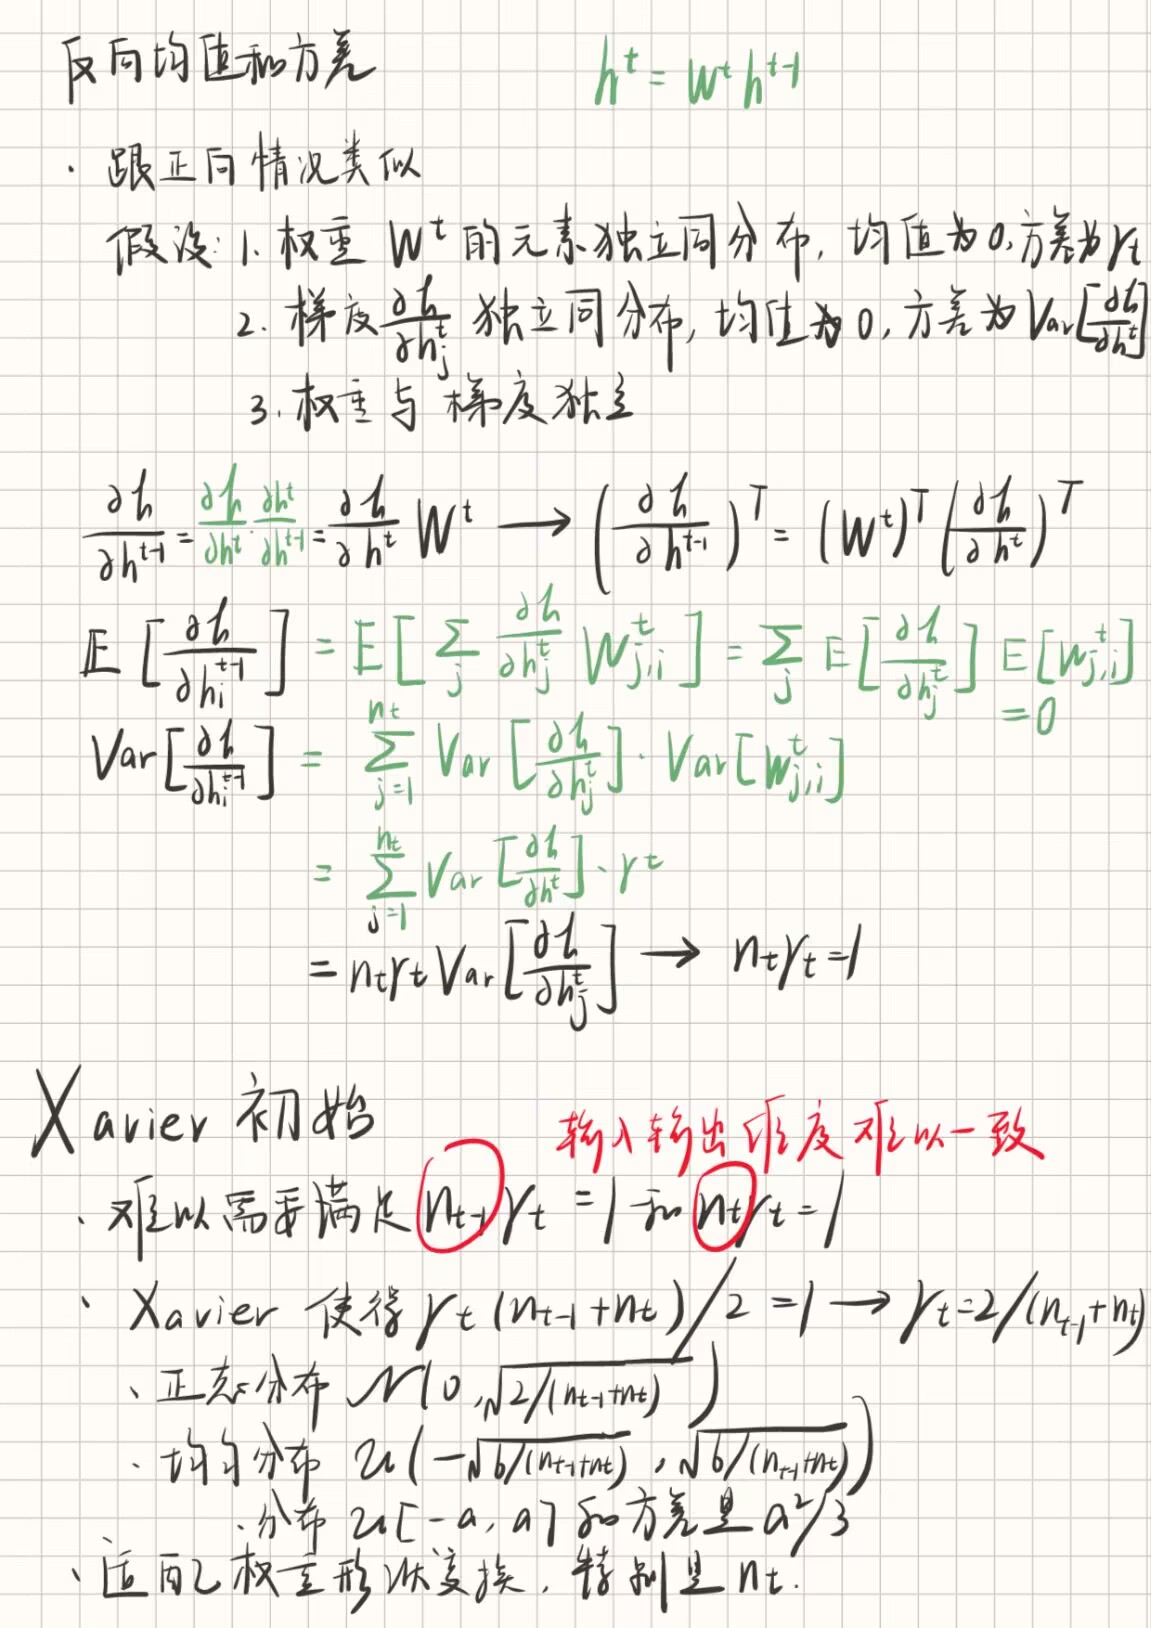 反向均值和方差 h^t = W^t h^{t-1}
· 跟正向情况类似
假设: 1. 权重 W^t 的元素独立同分布, 均值为0, 方差为 γ_t
2. 梯度 ∂h/∂h_j^t 独立同分布, 均值为0, 方差为 Var[∂h/∂h^t]
3. 权重与梯度独立
∂h/∂h^{t-1} = ∂h/∂h^t · ∂h^t/∂h^{t-1} = ∂h/∂h^t W^t ⟶ (∂h/∂h^{t-1})^T = (W^t)^T (∂h/∂h^t)^T
E[∂h/∂h_i^{t-1}] = E[∑_j ∂h/∂h_j^t W_{j,i}^t] = ∑_j E[∂h/∂h_j^t] E[W_{j,i}^t]
= 0
Var[∂h/∂h_i^{t-1}] = ∑_{j=1}^{n_t} Var[∂h/∂h_j^t] · Var[W_{j,i}^t]
= ∑_{j=1}^{n_t} Var[∂h/∂h^t] · γ^t
= n_t γ_t Var[∂h/∂h_j^t] → n_t γ_t = 1
Xavier 初始
输入输出维度难以一致
· 难以需要满足 n_{t-1} γ_t = 1 和 n_t γ_t = 1
· Xavier 使得 γ_t (n_{t-1} + n_t)/2 = 1 → γ_t = 2/(n_{t-1} + n_t)
· 正态分布 N(0, √2/(n_{t-1}+n_t))
· 均匀分布 U(-√6/(n_{t-1}+n_t), √6/(n_{t-1}+n_t))
· 分布 U[-a, a] 和方差是 a²/3
· 适配权重形状变换, 特别是 n_t.